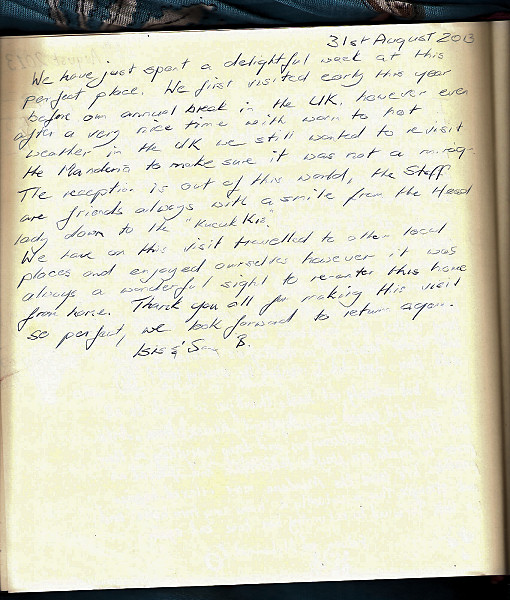 31st August 2013
We have just spent a delightful week at this
perfect place. We first visited early this year
before our annual break in the UK. however even
after a very nice time with warm to hot
weather in the UK we still wanted to revisit
the Mandarin to make sure it was not a mirage.
The reception is out of this world, the Staff
are friends always with a smile from the Head
lady down to the "Kucuk Kis".
We have on this visit travelled to other local
places and enjoyed ourselves however it was
always a wonderful sight to re-enter this home
from home. Thank you all for making this visit
so perfect, we look forward to return again.
& B.